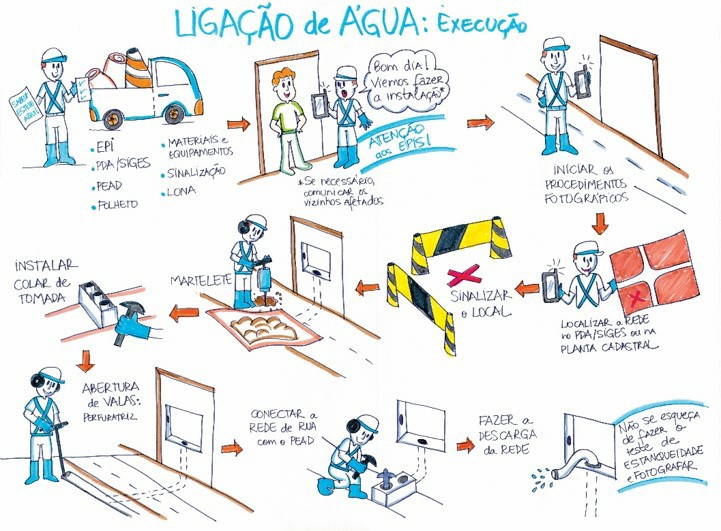 LIGAÇÃO de ÁGUA: EXECUÇÃO
• EPI
• PDA/SIGES
• PEAD
• FOLHETO
• MATERIAIS e
EQUIPAMENTOS
• SINALIZAÇÃO
• LONA
Bom dia!
Viemos fazer
a instalação*
ATENÇÃO
aos EPIS!
*Se necessário,
comunicar os
vizinhos afetados
INICIAR os
PROCEDIMENTOS
FOTOGRÁFICOS
LOCALIZAR a REDE
no PDA/SIGES ou na
PLANTA CADASTRAL
SINALIZAR
o LOCAL
MARTELETE
INSTALAR
COLAR de
TOMADA
ABERTURA
de VALAS:
PERFURATRIZ
CONECTAR a
REDE de RUA
com o PEAD
FAZER a
DESCARGA
da REDE
Não se esqueça
de fazer o
teste de
ESTANQUEIDADE
e FOTOGRAFAR